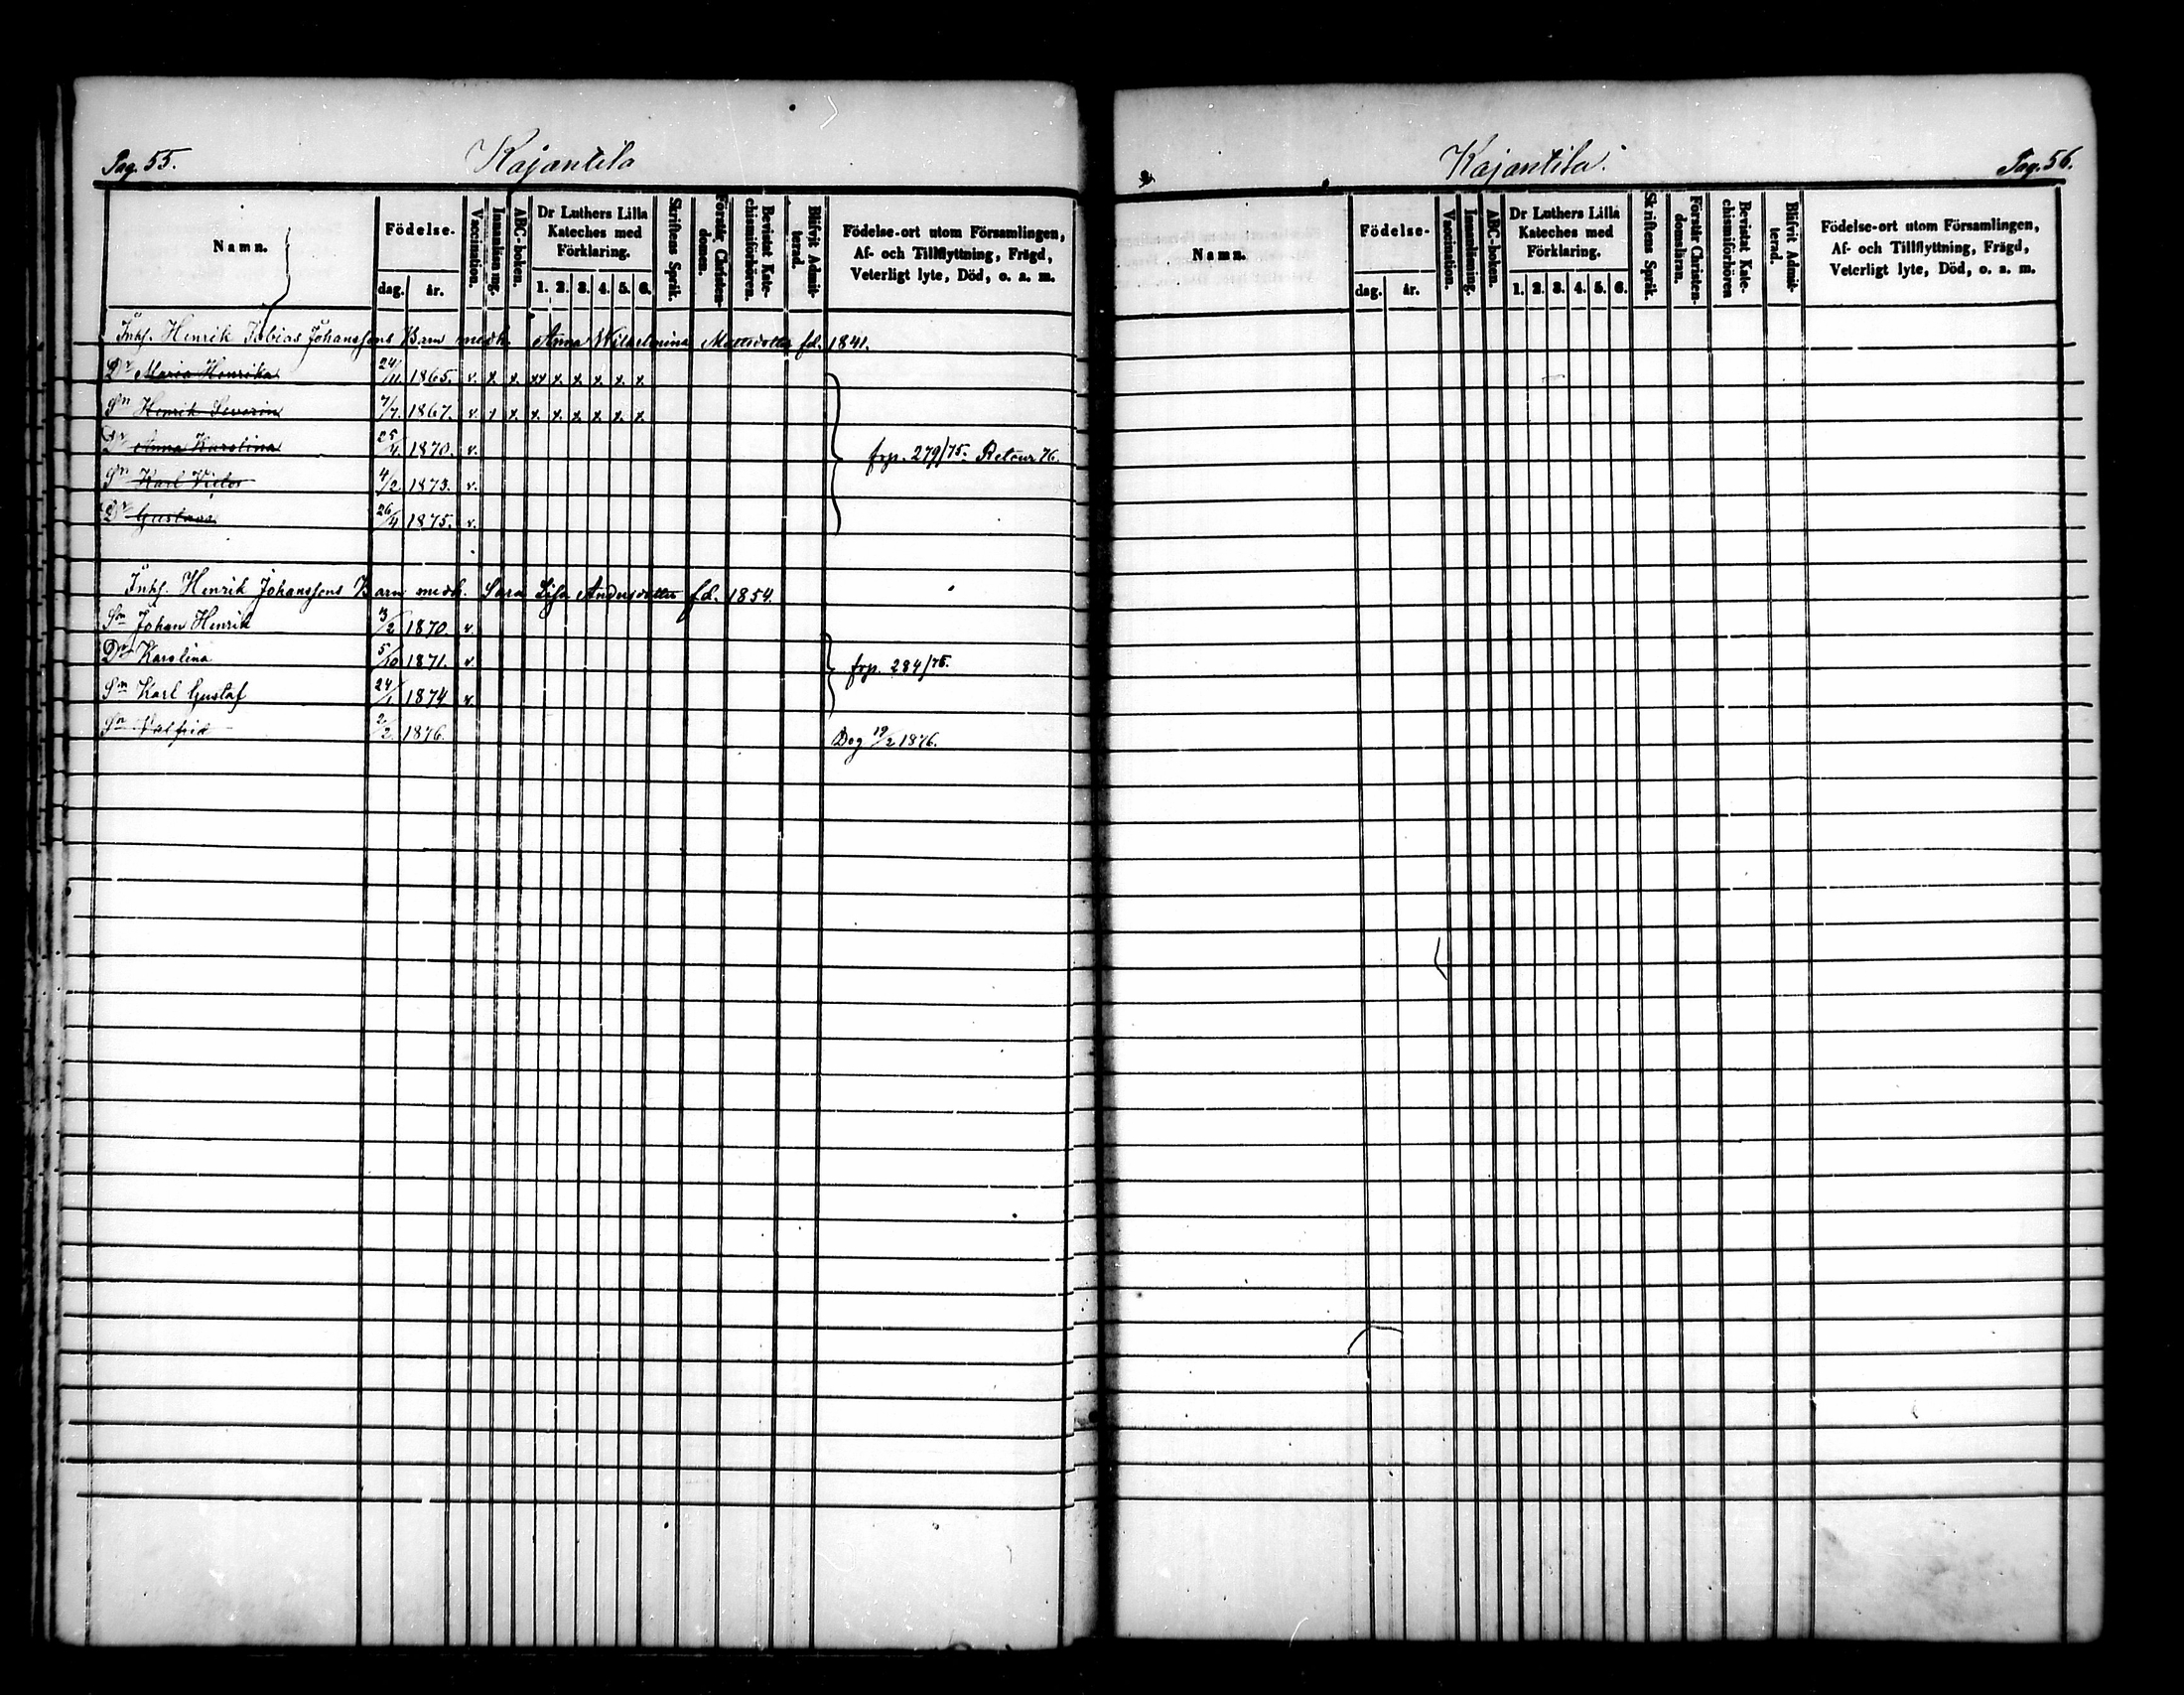 Pag. 55.
Kajantila
Namn.
Födelse-
dag.
år.
Vaccination.
Innanläsning.
ABC-boken.
Dr Luthers Lilla
Kateches med
Förklaring.
1. 2. 3. 4. 5. 6.
Skriftens Språk.
Förstår Christen-
domen.
Bevistat Kate-
chismiförhören.
Blifvit Admit-
terad.
Födelse-ort utom Församlingen,
Af- och Tillflyttning, Frägd,
Veterligt lyte, Död, o. a. m.
Inhs. Henrik Tobias Johanssons Barn medh. Anna Wilhelmina Mattsdotter fd. 1841.
Dr Maria Henrika 24/11 1865. v. x x. xx x. x. x. x. x.
Sn Henrik Severin 7/7 1867. v. x x. x. x. x. x. x. x.
Dr Anna Karolina 25/4 1870. v. frp. 279/75. Retour 76.
Sn Karl Victor 4/2 1873. v.
Dr Gustava 26/4 1875. v.
Inhs. Henrik Johanssons Barn medh. Sara Lisa Andersdotter fd. 1854.
Sn Johan Henrik 3/2 1870 v.
Dr Karolina 5/10 1871. v. frp. 284/75.
Sn Karl Gustaf 24/1 1874 v.
Sn Valfrid 2/2 1876. Dog 19/2 1876.
Kajantila.
Pag. 56.
Namn.
Födelse-
dag.
år.
Vaccination.
Innanläsning.
ABC-boken.
Dr Luthers Lilla
Kateches med
Förklaring.
1. 2. 3. 4. 5. 6.
Skriftens Språk.
Förstår Christen-
domsläran.
Bevistat Kate-
chismiförhören
Blifvit Admit-
terad.
Födelse-ort utom Församlingen,
Af- och Tillflyttning, Frägd,
Veterligt lyte, Död, o. a. m.